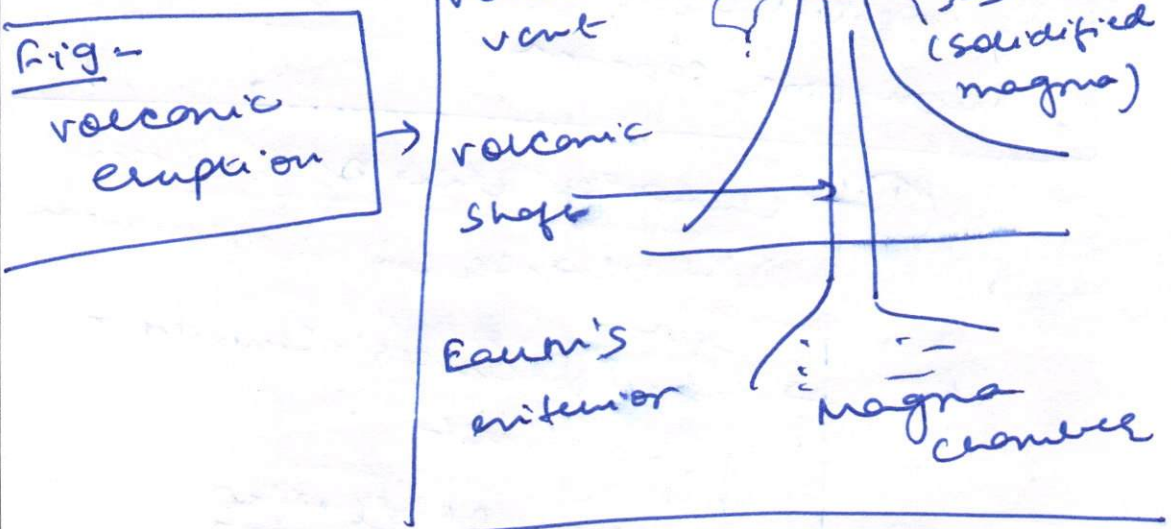 Fig-
volcanic
eruption
vent
(solidified
magma)
volcanic
shaft
Earth's
interior
Magma
chamber